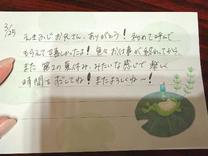 2/25
えきおじお兄さん、ありがとう! 初めて呼んで
もらえて嬉しかったよ! 色々お仕事が終わってから
また 第2の夏休み、みたいな感じで 楽しい
時間を 過ごしてね! またよろしくね〜!